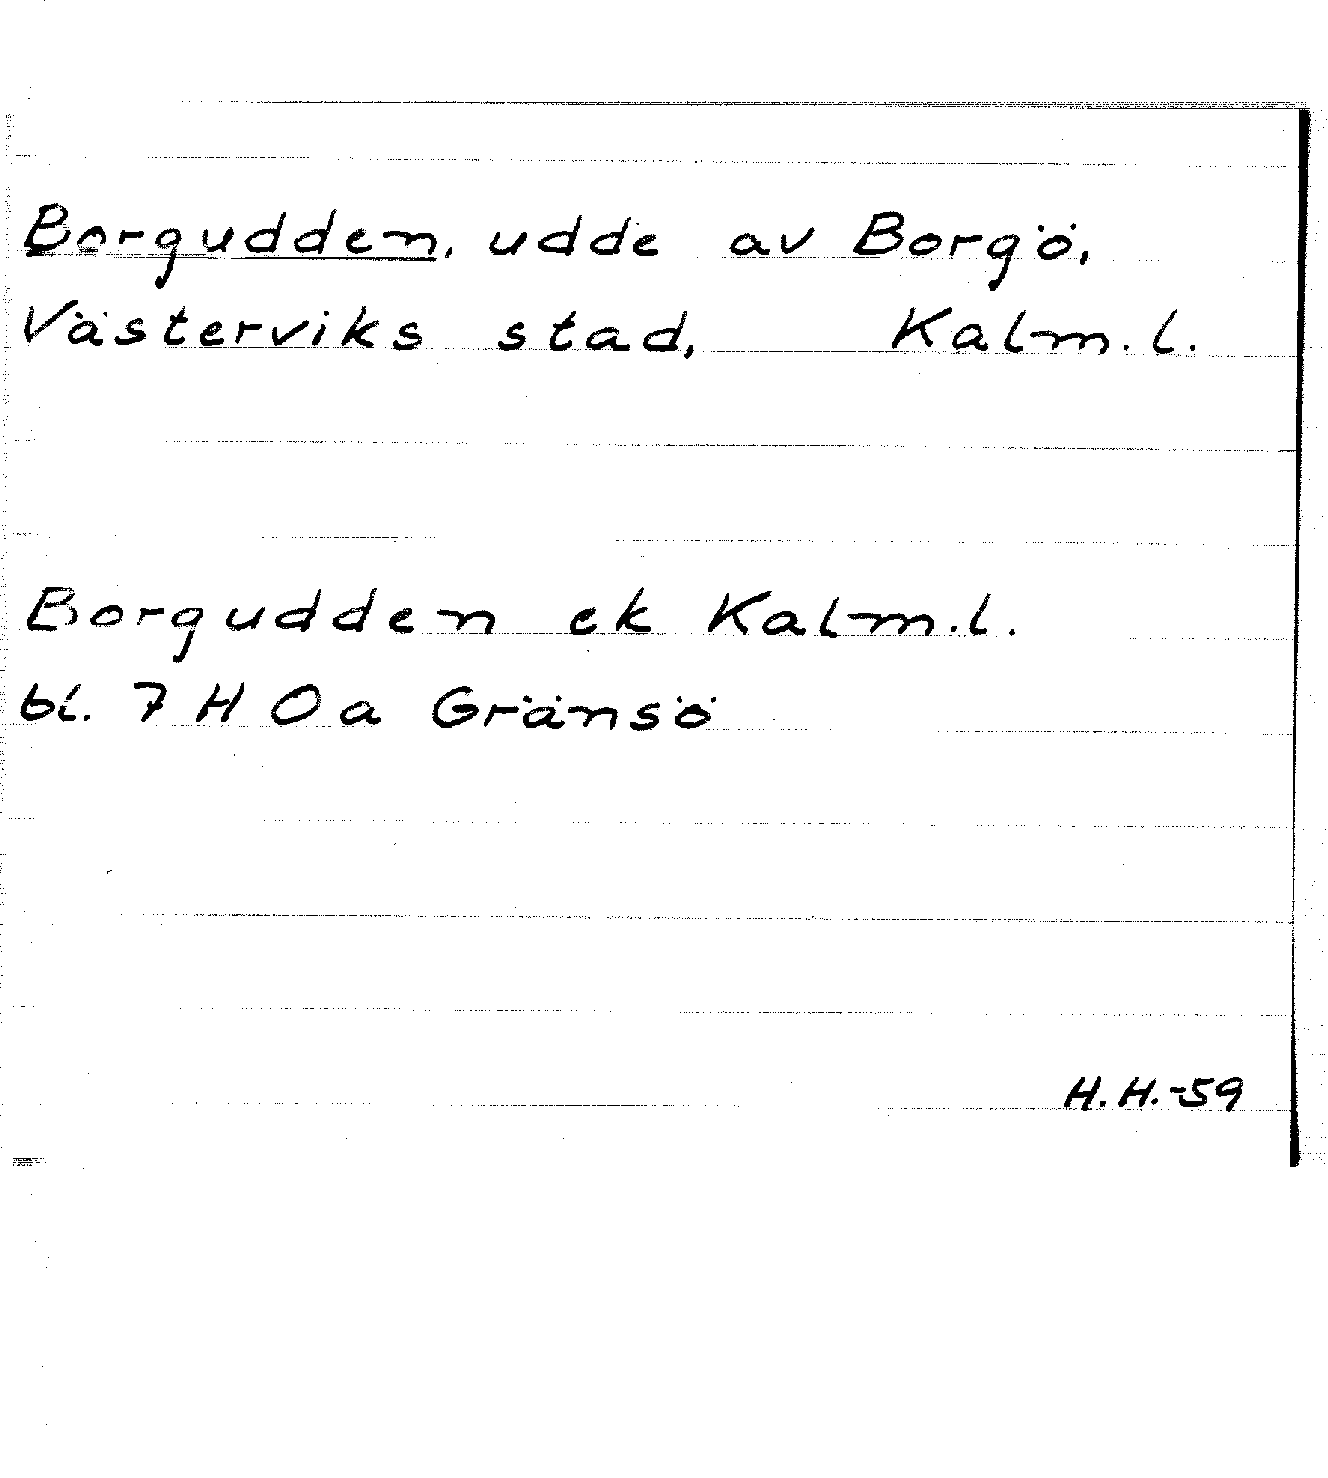 Borgudden, udde av Borgö,
Västerviks stad, Kalm.l.
Borgudden ek Kalm.l.
bl. 7 H 0 a Gränsö
H.H.-59